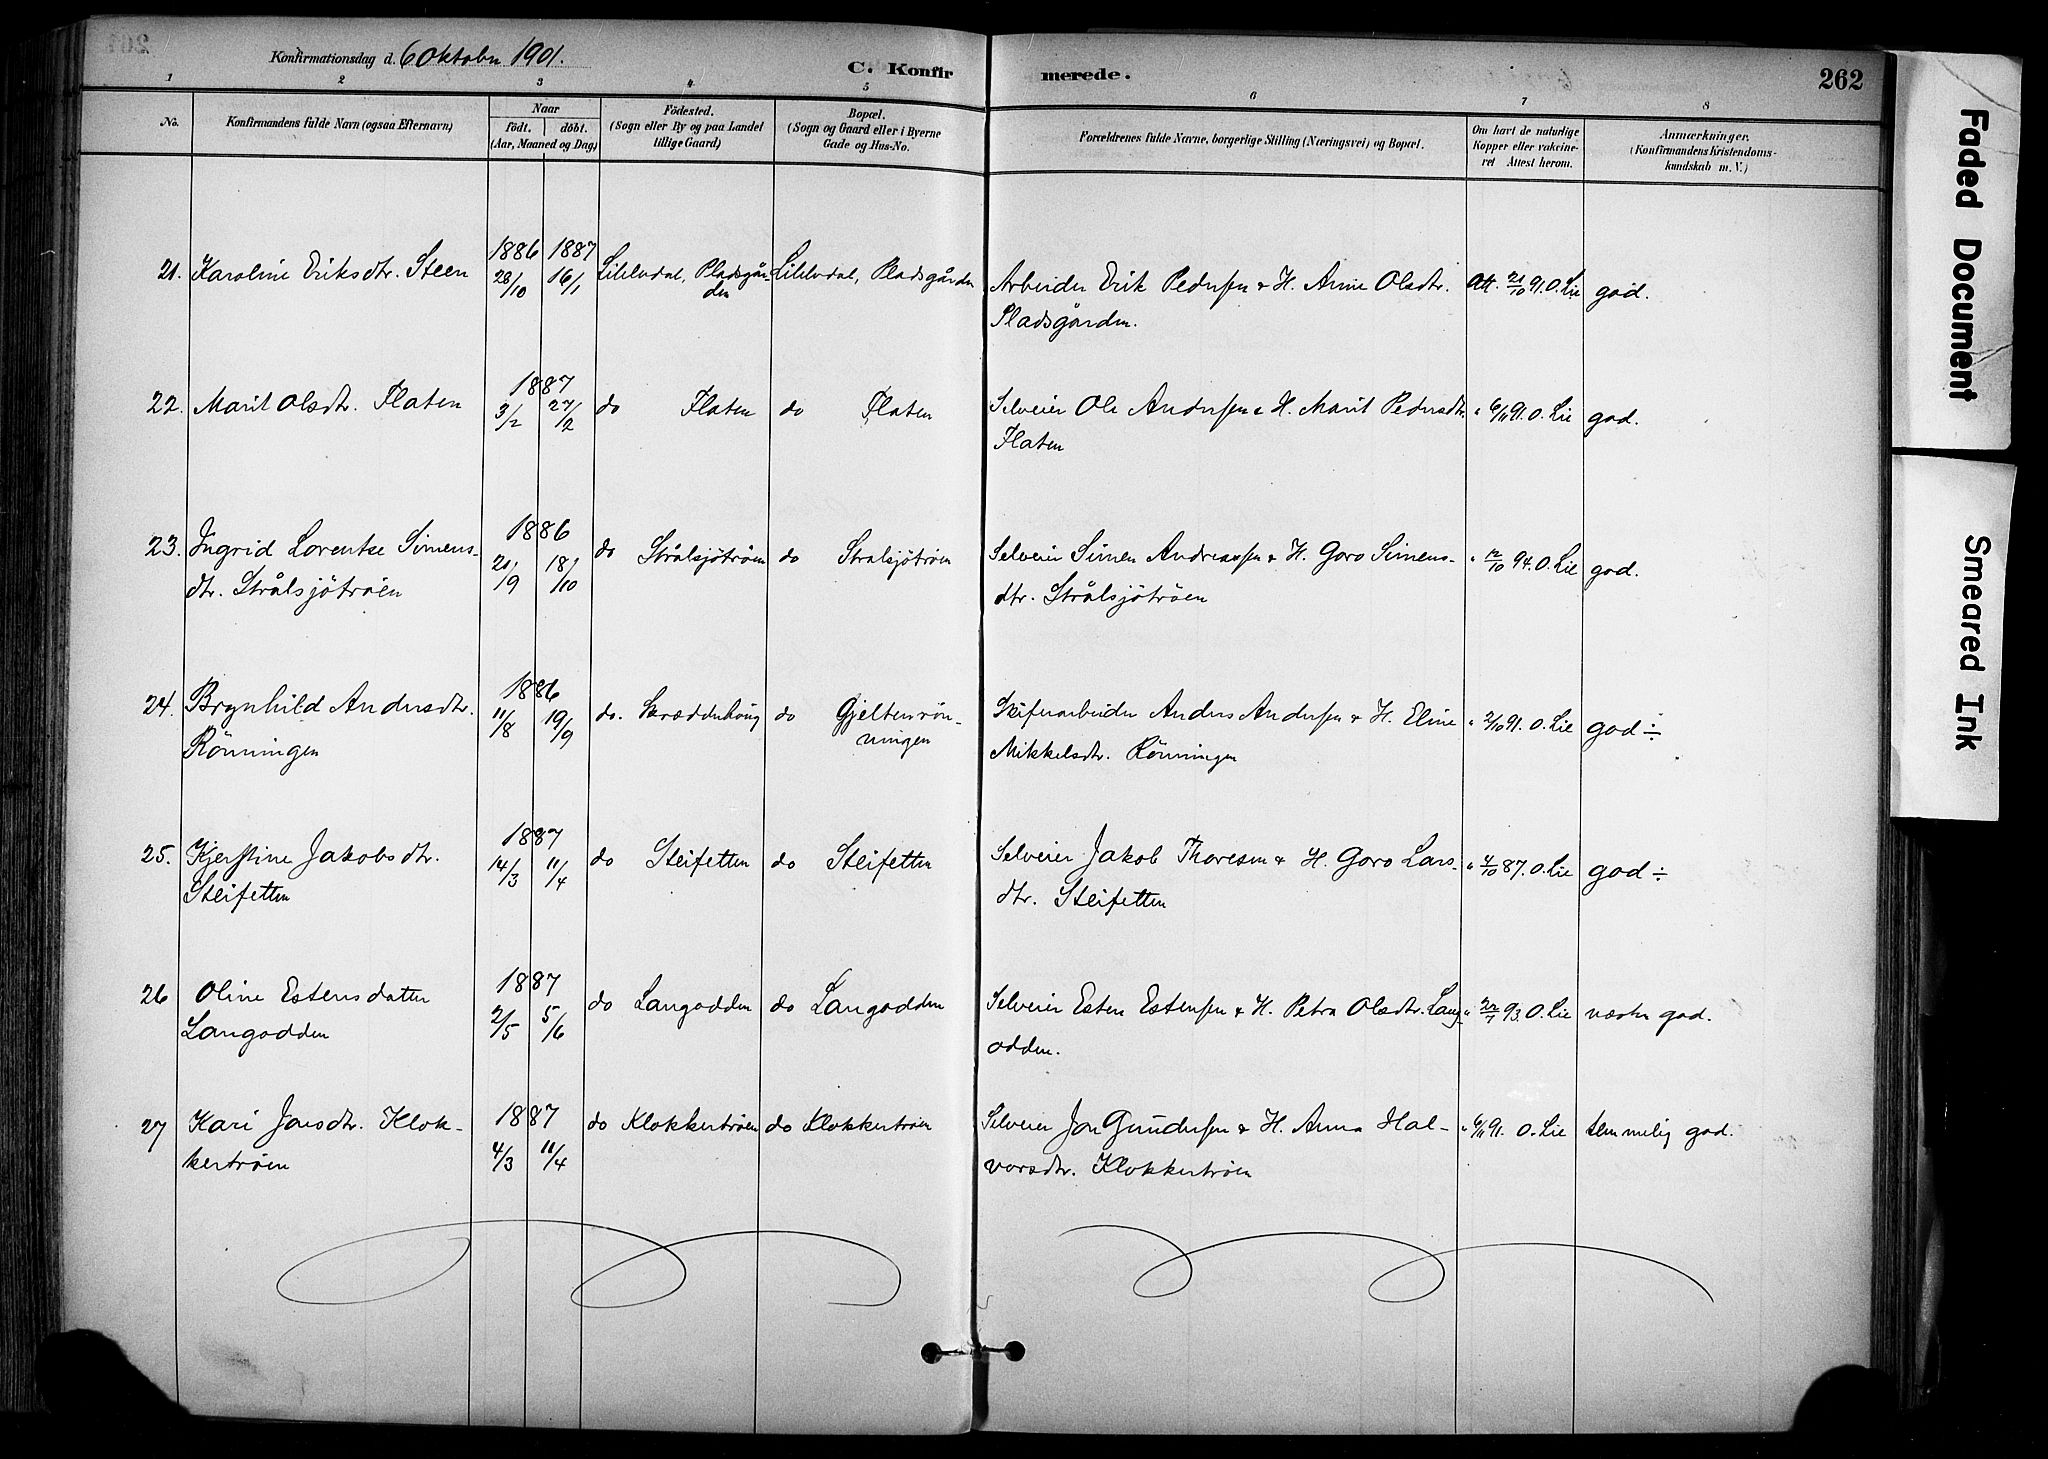 Konfirmationsdag d. 6 Oktober 1901.
C. Konfirmerede.
262
1 2 3 4 5 6 7 8
No.
Konfirmandens fulde Navn (ogsaa Efternavn)
Naar
födt. döbt.
(Aar, Maaned og Dag)
Födested.
(Sogn eller By og paa Landet
tillige Gaard)
Bopæl.
(Sogn og Gaard eller i Byerne
Gade og Hus-No.
Forældrenes fulde Navne, borgerlige Stilling (Næringsvei) og Bopæl.
Om havt de naturlige
Kopper eller vakcine-
ret Attest herom.
Anmærkninger.
(Konfirmandens Kristendoms-
kundskab m. V.)
1886 1887
21. Karoline Eriksdtr. Steen 28/10 16/1 Lilelvdal, Pladsgår- Lilelvdal, Pladsgården Arbeider Erik Pedersen & H. Anne Olsdtr. Att. 21/10 91. O. Lie god.
den
Pladsgården.
1887
22. Marit Olsdtr. Flaten 3/2 27/2 do Flaten do Flaten Selveier Ole Andersen & H. Marit Pedersdtr. " 6/11 91. O. Lie god.
Flaten
1886
23. Ingrid Lorentse Simens- 21/9 18/10 do Strålsjötröen do Strålsjötröen Selveier Simen Andreassen & H. Goro Simens- " 12/10 94. O. Lie god.
dtr. Strålsjötröen dtr. Strålsjötröen
1886
24. Brynhild Andersdtr. 11/8 19/9 do. Skrædderhaug do Gjeltenrön- Skiferarbeider Anders Andersen & H. Eline " 2/10 91. O. Lie god ÷
Rönningen ningen Mikkelsdtr. Rönningen
1887
25. Kjerstine Jakobsdtr. 14/3 11/4 do Steifetten do Steifetten Selveier Jakob Thoresen & H. Goro Lars- " 4/10 87. O. Lie god ÷
Steifetten dtr. Steifetten
1887
26 Oline Estensdatter 2/5 5/6 do Langodden do Langodden Selveier Esten Estensen & H. Petra Olsdtr. Lang- " 22/7 93. O. Lie næsten god.
Langodden odden.
1887
27 Kari Jonsdtr. Klok- 4/3 11/4 do Klokkertröen do Klokkertröen Selveier Jon Gundersen & H. Anna Hal- " 6/11 91. O. Lie temmelig god.
kertröen vorsdtr. Klokkertröen
Faded Document
Smeared Ink